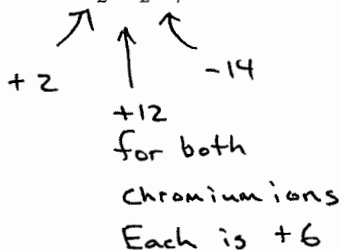 +2
-14
+12
for both
chromium ions
Each is +6